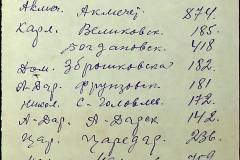 Акмеч. Акмечеть 874.
Кадл. Великовск. 185.
Богдановск. 418
Дом. Зброшковска 182.
А-Дар. Фрунзовк 181
Никол. С-Головлев. 172.
А-Дар. А-Дарск 142.
Цар. Царедар. 236.